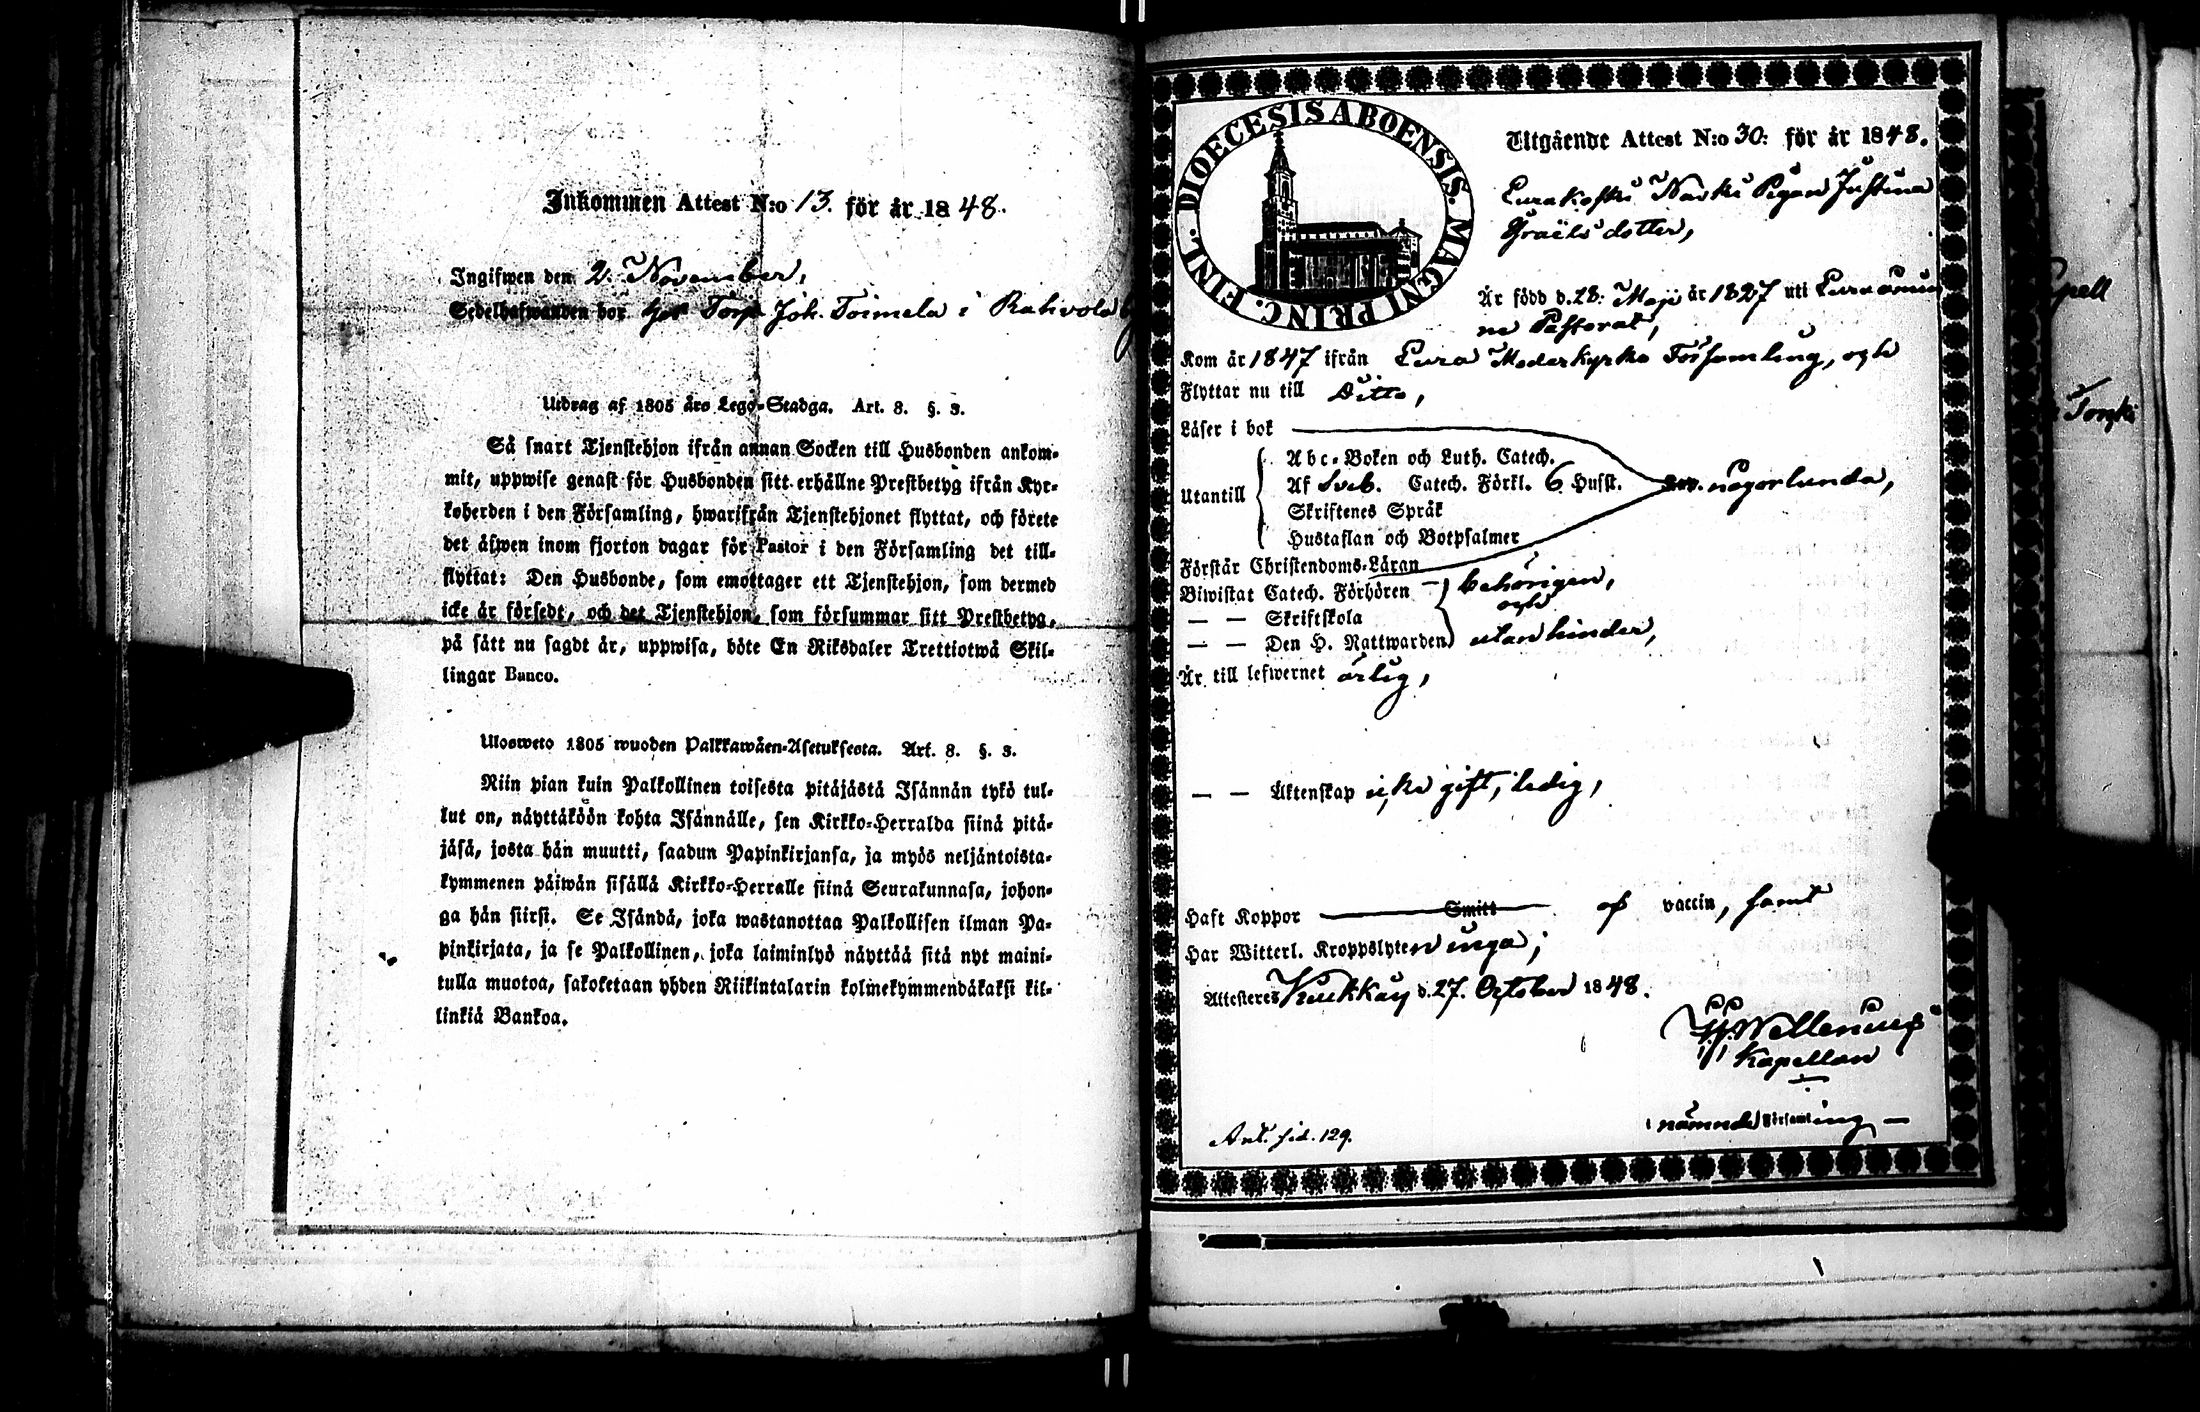 Inkommen Attest N:o 13. för år 1848.
Ingifwen den 2. November,
Sedelhafwanden bor hos Torp. Joh. Toimela i Rahvola
Utdrag af 1805 års Lego-Stadga. Art. 8. §. 3.
Så snart Tjenstehjon ifrån annan Socken till Husbonden ankom-
mit, uppwise genast för Husbonden sitt erhållne Prestbetyg ifrån Kyr-
koherden i den Församling, hwarifrån Tjenstehjonet flyttat, och förete
det äfwen inom fjorton dagar för Pastor i den Församling det till-
flyttat: Den Husbonde, som emottager ett Tjenstehjon, som dermed
icke är försedt, och det Tjenstehjon, som försummar sitt Prestbetyg,
på sätt nu sagdt är, uppwisa, böte En Riksdaler Trettiotwå Skil-
lingar Banco.
Ulosweto 1805 wuoden Palkkawäen-Asetuksesta. Art. 8. §. 3.
Niin pian kuin Palkollinen toisesta pitäjästä Isännän tykö tul-
lut on, näyttäköön kohta Isännälle, sen Kirkko-Herralda siinä pitä-
jäsä, josta hän muutti, saadun Papinkirjansa, ja myös neljäntoista-
kymmenen päiwän sisällä Kirkko-Herralle siinä Seurakunnasa, johon-
ga hän siirsi. Se Isändä, joka wastanottaa Palkollisen ilman Pa-
pinkirjata, ja se Palkollinen, joka laiminlyö näyttää sitä nyt maini-
tulla muotoa, sakoketaan yhden Riikintalarin kolmekymmendäkaksi kil-
linkiä Bankoa.
DIOECESIS ABOENSIS. MAGNI PRINC. FINL.
Utgående Attest N:o 30: för år 1848.
Eurakoski Naski Pigan Justina
Graelsdotter,
Är född d. 28: Maji år 1827 uti Euraåmin
ne Pastorat,
Kom år 1847 ifrån Eura Moderkyrko Församling, och
Flyttar nu till Ditto,
Läser i bok
Utantill
Abc-Boken och Luth. Catech.
Af Sveb. Catech. Förkl. 6 Husst. någorlunda,
Skriftenes Språk
Hustaflan och Botpsalmer
Förstår Christendoms-Läran
Biwistat Catech. Förhören behörigen,
och
— — Skriftskola
— — Den H. Nattwarden utan hinder,
Är till lefwernet ärlig,
— — Äktenskap icke gift, ledig,
Haft Koppor Smitt af vaccin, samt
Har Witterl. Kroppslyten inga;
Attesteras Kiukkay d. 27. October 1848.
Wellenius
Kapellan
i nämnde Församling —
Ant. sid. 129.
pell
Torpk